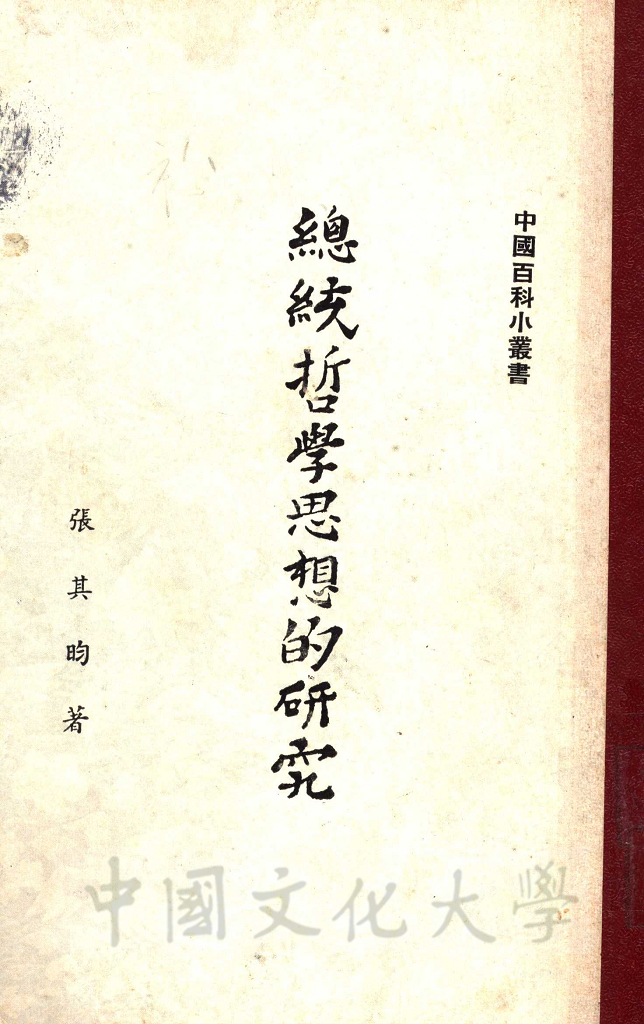 中國百科小叢書
總統哲學思想的研究
張其昀著
中國文化大學